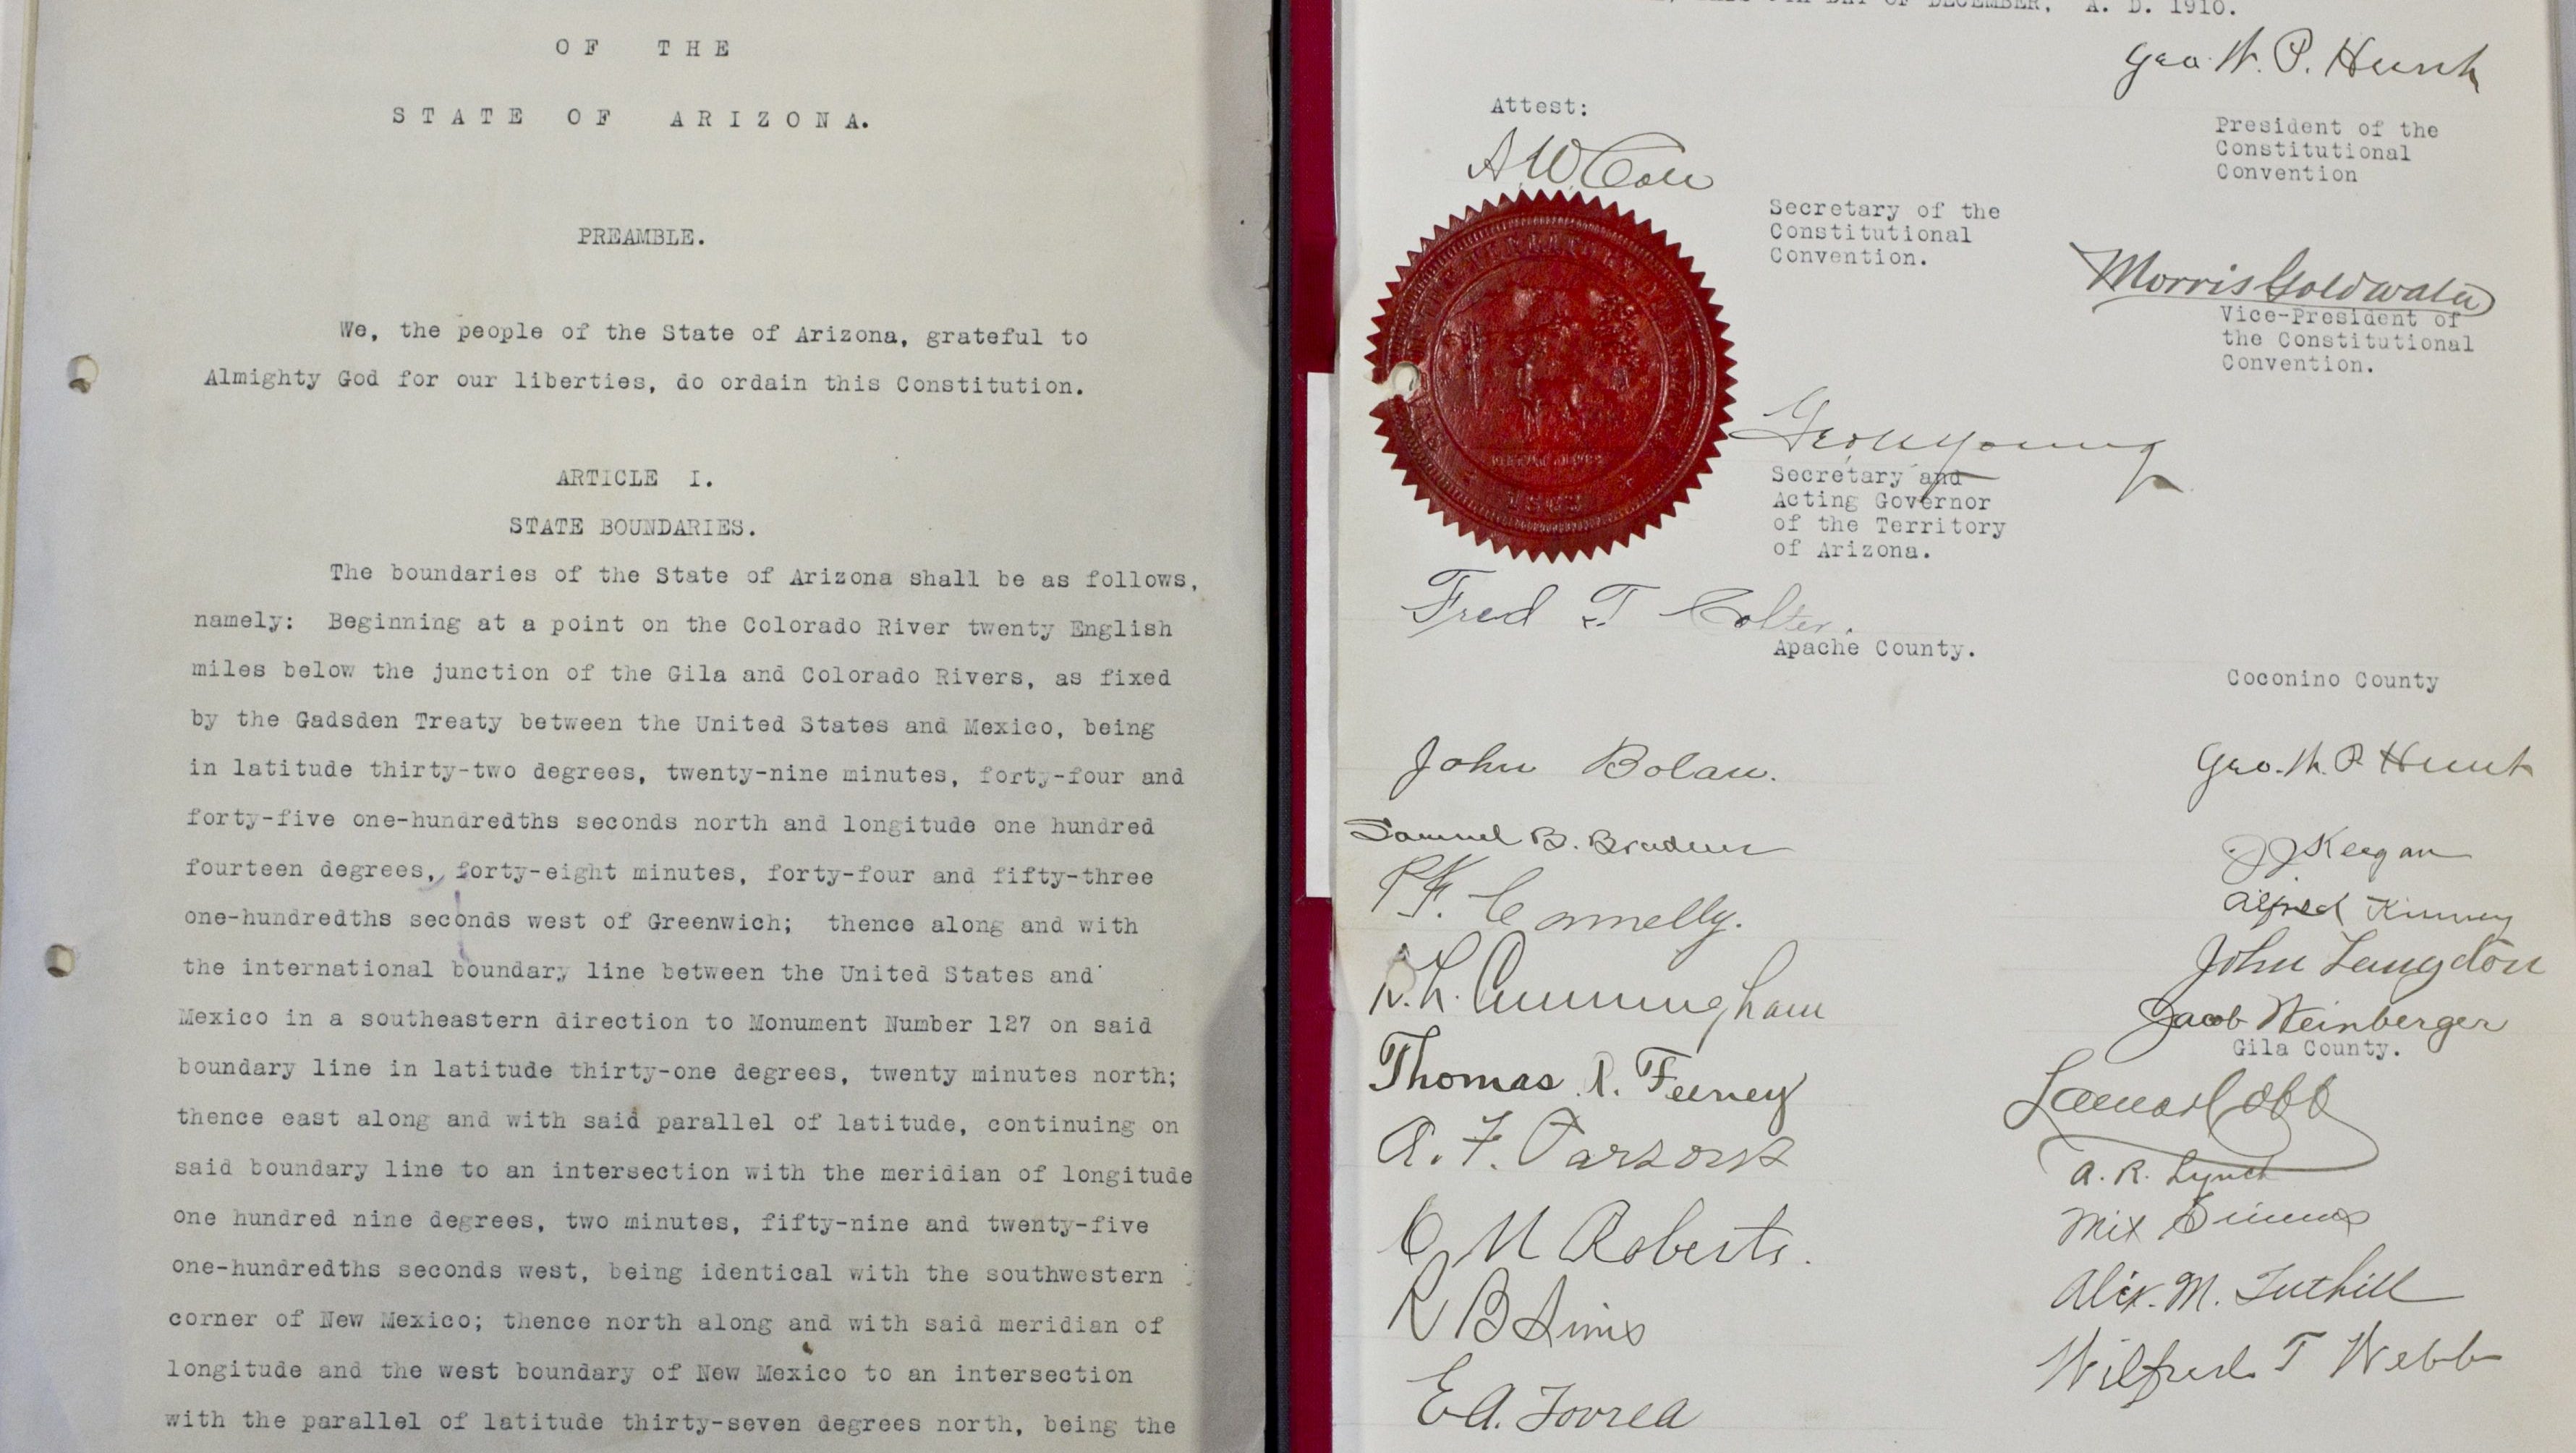 OF THE
STATE OF ARIZONA.
PREAMBLE.
We, the people of the State of Arizona, grateful to
Almighty God for our liberties, do ordain this Constitution.
ARTICLE I.
STATE BOUNDARIES.
The boundaries of the State of Arizona shall be as follows,
namely: Beginning at a point on the Colorado River twenty English
miles below the junction of the Gila and Colorado Rivers, as fixed
by the Gadsden Treaty between the United States and Mexico, being
in latitude thirty-two degrees, twenty-nine minutes, forty-four and
forty-five one-hundredths seconds north and longitude one hundred
fourteen degrees, forty-eight minutes, forty-four and fifty-three
one-hundredths seconds west of Greenwich; thence along and with
the international boundary line between the United States and
Mexico in a southeastern direction to Monument Number 127 on said
boundary line in latitude thirty-one degrees, twenty minutes north;
thence east along and with said parallel of latitude, continuing on
said boundary line to an intersection with the meridian of longitude
one hundred nine degrees, two minutes, fifty-nine and twenty-five
one-hundredths seconds west, being identical with the southwestern
corner of New Mexico; thence north along and with said meridian of
longitude and the west boundary of New Mexico to an intersection
with the parallel of latitude thirty-seven degrees north, being the
DAY OF DECEMBER, A. D. 1910.
Geo. W. P. Hunt
President of the
Constitutional
Convention
Attest:
A. W. Cole
Secretary of the
Constitutional
Convention.
Morris Goldwater
Vice-President of
the Constitutional
Convention.
Geo U Young
Secretary and
Acting Governor
of the Territory
of Arizona.
Fred T Colter.
Apache County.
Coconino County
John Bolan.
Samuel B. Bradner
P. F. Connelly.
D. L. Cunningham
Thomas R. Feeney
A. F. Parsons
C M Roberts.
R B Sims
E A. Tovrea
Geo. W. P. Hunt
J J Keegan
Alfred Kinney
John Langdon
Jacob Weinberger
Gila County.
Lamar Cobb
A. R. Lynch
Mit Simms
Alex. M. Tuthill
Wilfred T Webb